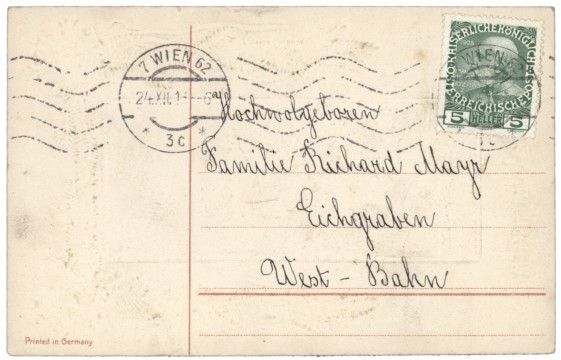 7 WIEN 62
24.XII.1
3c
* *
KAISERLICHE KÖNIGLICHE
ÖSTERREICHISCHE POST
5 HELLER 5
WIEN 6
Hochwolgeboren
Familie Richard Mayr
Eichgraben
West - Bahn
Printed in Germany